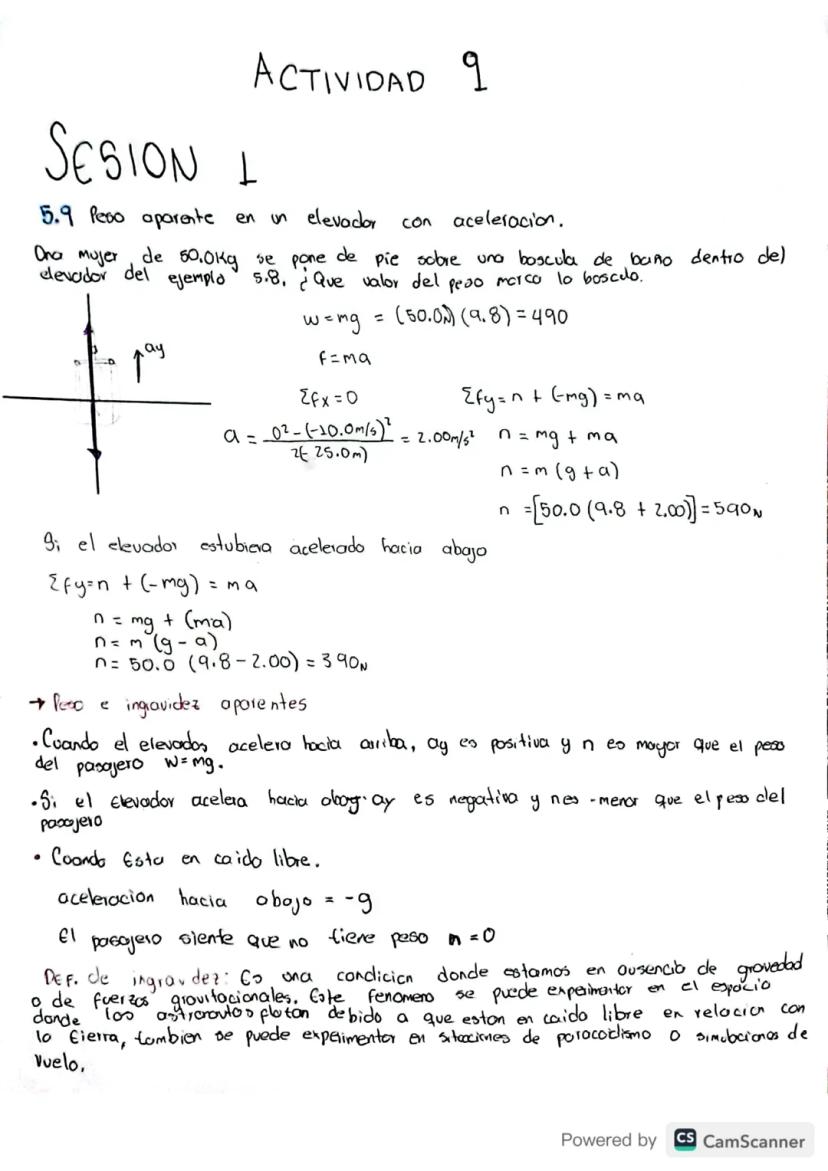 ACTIVIDAD 9
SESION 1
5.9 Peso aparente en un elevador con aceleracion.
Una mujer de 50.0Kg se pone de pie sobre una bascula de baño dentro del
elevador del ejemplo 5.8, ¿Que valor del peso marca la bascula.
w=mg = (50.0N)(9.8) = 490
f=ma
ay
Σfx=0
Σfy= n + (-mg) = ma
a = 0²-(-10.0m/s)² / 2(-25.0m) = 2.00m/s²
n = mg + ma
n = m (g + a)
n =[50.0 (9.8 + 2.00)] = 590N
Si el elevador estubiera acelerado hacia abajo
Σfy=n + (-mg) = ma
n = mg + (ma)
n = m (g - a)
n = 50.0 (9.8 - 2.00) = 390N
→ Peso e ingravidez aparentes
• Cuando el elevador acelera hacia arriba, ay es positiva y n es mayor que el peso
del pasajero W=mg.
• Si el Elevador acelera hacia abajo ay es negativa y n es -menor que el peso del
pasajero
• Coando Esta en caida libre.
aceleracion hacia abajo = -g
El pasajero siente que no tiene peso n =0
DEF. de ingravidez: Es una condicion donde estamos en ausencia de gravedad
o de fuerzas gravitacionales. Este fenomero se puede experimentar en el espacio
donde los astronautas flotan debido a que estan en caida libre en relacion con
la tierra, tambien se puede experimentar en situaciones de paracaidismo o simulaciones de
vuelo.
Powered by CS CamScanner